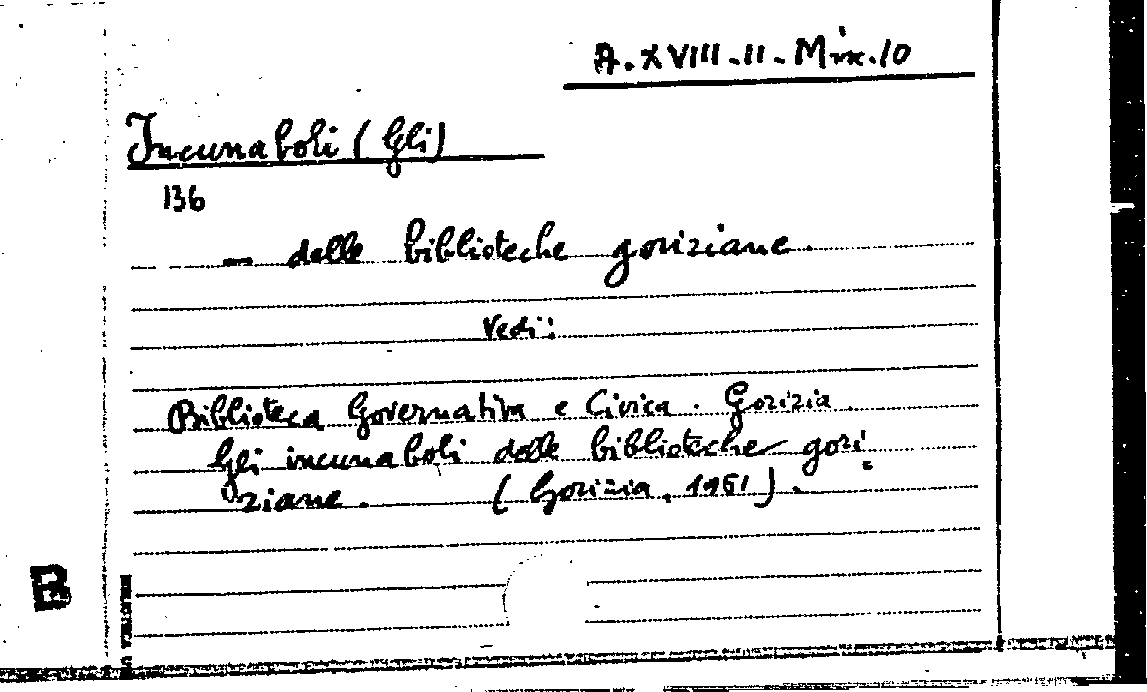 A.XVIII.II.Mix.10
Incunaboli (Gli)
136
— delle biblioteche goriziane.
Vedi:
Biblioteca Governativa e Civica. Gorizia.
Gli incunaboli delle biblioteche gori-
ziane. (Gorizia, 1961).
B
BIBLIOTECA